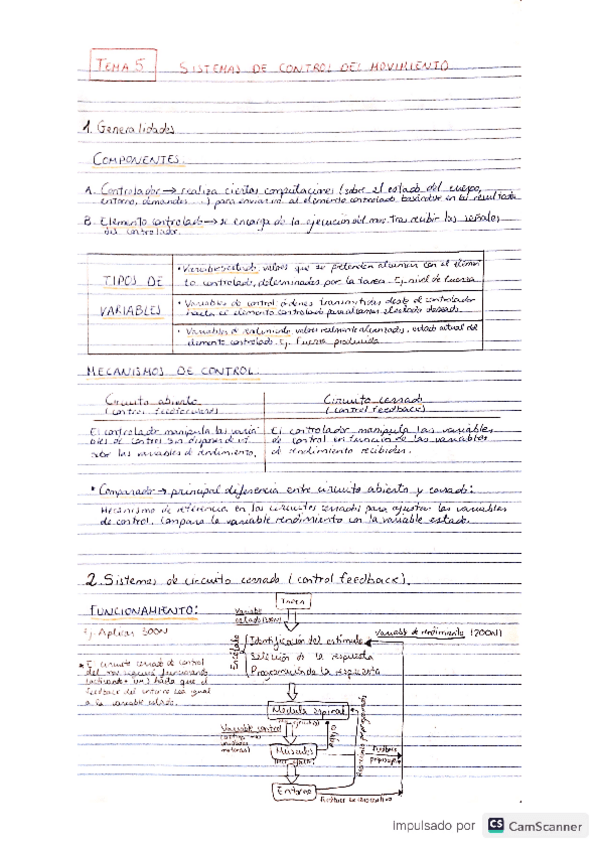 TEMA 5 SISTEMAS DE CONTROL DEL MOVIMIENTO
1. Generalidades
COMPONENTES.
A. Controlador → realiza ciertas computaciones (sobre el estado del cuerpo,
entorno, demandas ...) para enviarlas al elemento controlado basándose en el resultado
B. Elemento controlado → se encarga de la ejecución del mov. tras recibir las señales
del controlador.
TIPOS DE
VARIABLES
• Variables estado valores que se pretenden alcanzar con el elemen
to controlado, determinados por la tarea. Ej. nivel de fuerza
• Variables de control órdenes transmitidas desde el controlador
hacia el elemento controlado para alcanzar el estado deseado.
• Variables de rendimiento valores realmente alcanzados, estado actual del
elemento controlado. Ej. Fuerza producida
MECANISMOS DE CONTROL.
Circuito abierto
(control feedforward)
Circuito cerrado
(control feedback)
El controlador manipula las varia
bles de control sin disponer de
sobre las variables de rendimiento.
El controlador manipula las variables
de control en función de las variables
de rendimiento recibidas.
• Comparador → principal diferencia entre circuito abierto y cerrado:
Mecanismo de referencia en los circuitos cerrados para ajustar las variables
de control. Compara la variable rendimiento con la variable estado.
2. Sistemas de circuito cerrado (control feedback).
FUNCIONAMIENTO:
Ej. Aplicar 300N
* El circuito cerrado de control
del mov. seguirá funcionando
hasta que el
feedback del entorno sea igual
a la variable estado.
Tarea
Variable
estado (300N)
Encéfalo
Identificación del estímulo
Selección de la respuesta
Programación de la respuesta
Variable de rendimiento (200N)
Médula espinal
Variable control
Músculos
Entorno
Impulsado por CS CamScanner